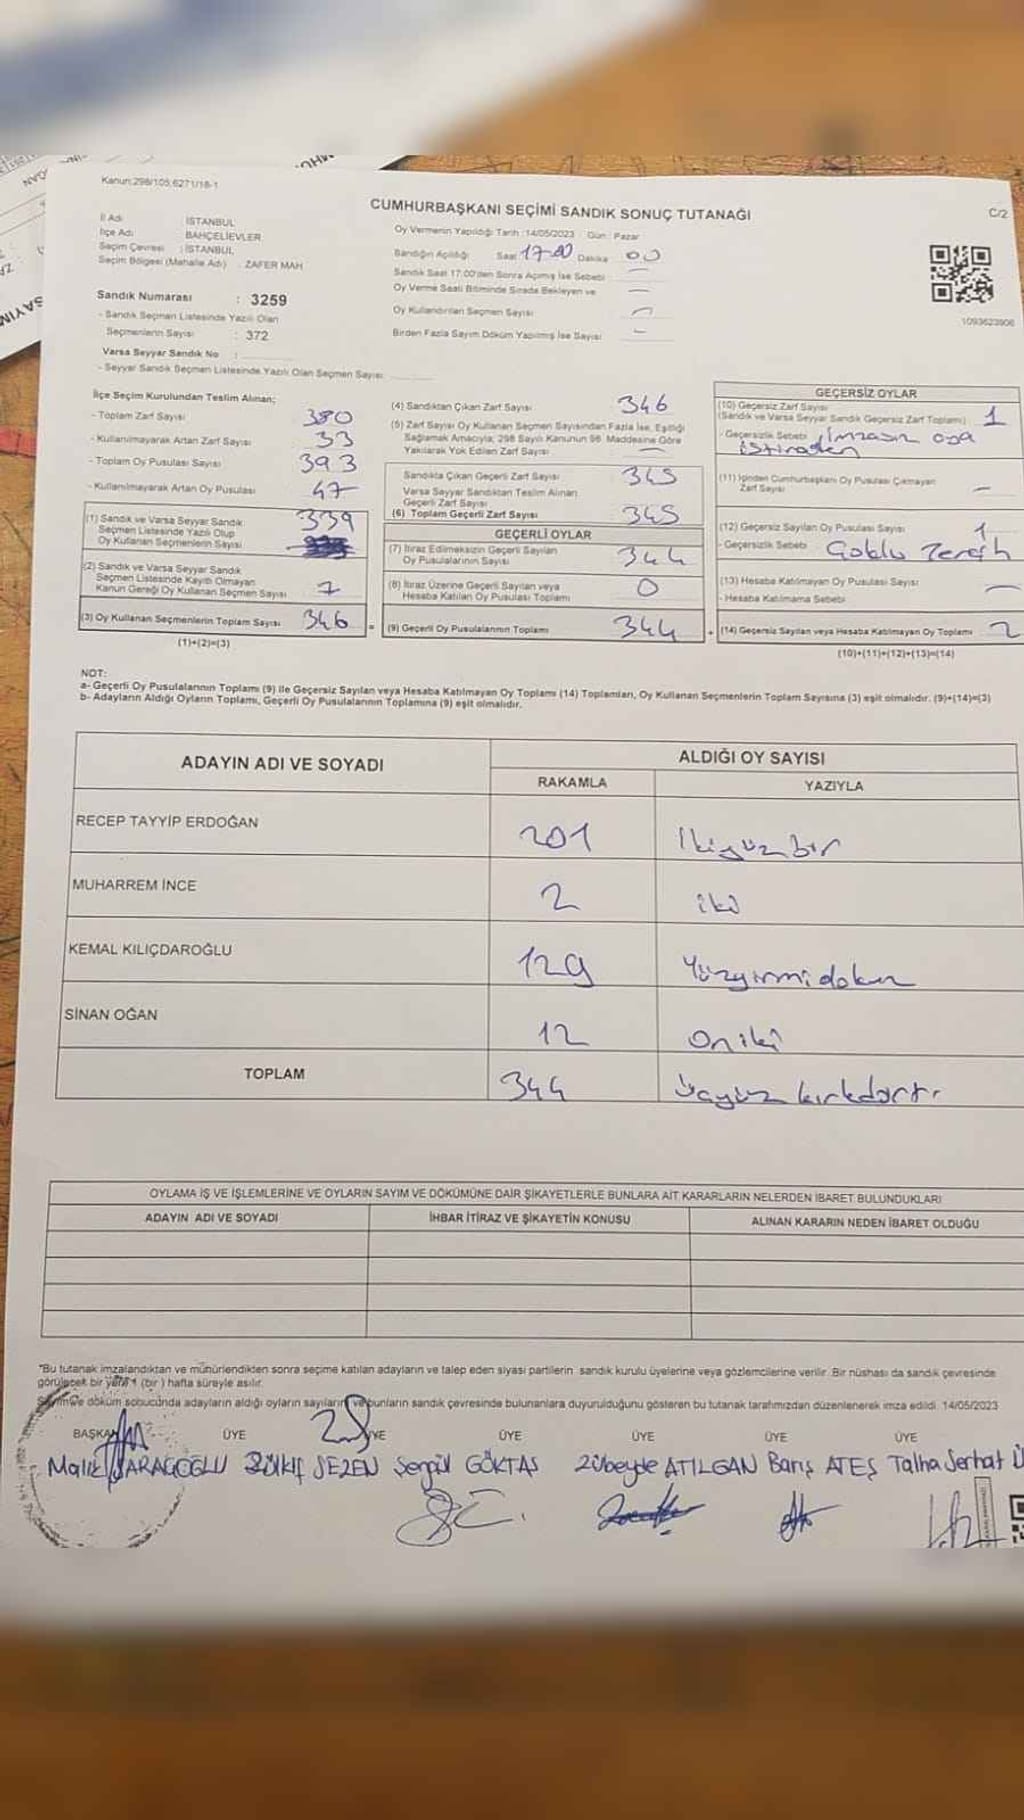 Kanun:298/105;6271/18-1
CUMHURBAŞKANI SEÇİMİ SANDIK SONUÇ TUTANAĞI
C/2
İl Adı : İSTANBUL
İlçe Adı : BAHÇELİEVLER
Seçim Çevresi : İSTANBUL
Seçim Bölgesi (Mahalle Adı) : ZAFER MAH
Sandık Numarası : 3259
- Sandık Seçmen Listesinde Yazılı Olan
Seçmenlerin Sayısı : 372
Varsa Seyyar Sandık No :
- Seyyar Sandık Seçmen Listesinde Yazılı Olan Seçmen Sayısı
Oy Vermenin Yapıldığı Tarih :14/05/2023 Gün : Pazar
Sandığın Açıldığı Saat 17:00 Dakika 00
Sandık Saat 17:00'den Sonra Açılmış İse Sebebi —
Oy Verme Saati Bitiminde Sırada Bekleyen ve
Oy Kullandırılan Seçmen Sayısı —
Birden Fazla Sayım Döküm Yapılmış İse Sayısı —
1093623906
İlçe Seçim Kurulundan Teslim Alınan;
- Toplam Zarf Sayısı 380
- Kullanılmayarak Artan Zarf Sayısı 33
- Toplam Oy Pusulası Sayısı 393
- Kullanılmayarak Artan Oy Pusulası 47
(1) Sandık ve Varsa Seyyar Sandık
Seçmen Listesinde Yazılı Olup
Oy Kullanan Seçmenlerin Sayısı 339
(2) Sandık ve Varsa Seyyar Sandık
Seçmen Listesinde Kayıtlı Olmayan
Kanun Gereği Oy Kullanan Seçmen Sayısı 7
(3) Oy Kullanan Seçmenlerin Toplam Sayısı 346 =
(1)+(2)=(3)
(4) Sandıktan Çıkan Zarf Sayısı 346
(5) Zarf Sayısı Oy Kullanan Seçmen Sayısından Fazla İse, Eşitliği
Sağlamak Amacıyla; 298 Sayılı Kanunun 98. Maddesine Göre
Yakılarak Yok Edilen Zarf Sayısı —
Sandıkta Çıkan Geçerli Zarf Sayısı 345
Varsa Seyyar Sandıktan Teslim Alınan
Geçerli Zarf Sayısı
(6) Toplam Geçerli Zarf Sayısı 345
GEÇERLİ OYLAR
(7) İtiraz Edilmeksizin Geçerli Sayılan
Oy Pusulalarının Sayısı 344
(8) İtiraz Üzerine Geçerli Sayılan veya
Hesaba Katılan Oy Pusulası Toplamı 0
(9) Geçerli Oy Pusulalarının Toplamı 344 +
GEÇERSİZ OYLAR
(10) Geçersiz Zarf Sayısı
(Sandık ve Varsa Seyyar Sandık Geçersiz Zarf Toplamı) 1
- Geçersizlik Sebebi
(11) İçinden Cumhurbaşkanı Oy Pusulası Çıkmayan
Zarf Sayısı —
(12) Geçersiz Sayılan Oy Pusulası Sayısı 1
- Geçersizlik Sebebi Çoklu Tercih
(13) Hesaba Katılmayan Oy Pusulası Sayısı —
- Hesaba Katılmama Sebebi
(14) Geçersiz Sayılan veya Hesaba Katılmayan Oy Toplamı 2
(10)+(11)+(12)+(13)=(14)
NOT:
a- Geçerli Oy Pusulalarının Toplamı (9) ile Geçersiz Sayılan veya Hesaba Katılmayan Oy Toplamı (14) Toplamları, Oy Kullanan Seçmenlerin Toplam Sayısına (3) eşit olmalıdır. (9)+(14)=(3)
b- Adayların Aldığı Oyların Toplamı, Geçerli Oy Pusulalarının Toplamına (9) eşit olmalıdır.
ADAYIN ADI VE SOYADI
ALDIĞI OY SAYISI
RAKAMLA YAZIYLA
RECEP TAYYİP ERDOĞAN 201 İkiyüzbir
MUHARREM İNCE 2 iki
KEMAL KILIÇDAROĞLU 129 Yüzyirmidokuz
SİNAN OĞAN 12 Oniki
TOPLAM 344 üçyüz kırkdört
OYLAMA İŞ VE İŞLEMLERİNE VE OYLARIN SAYIM VE DÖKÜMÜNE DAİR ŞİKAYETLERLE BUNLARA AİT KARARLARIN NELERDEN İBARET BULUNDUKLARI
ADAYIN ADI VE SOYADI İHBAR İTİRAZ VE ŞİKAYETİN KONUSU ALINAN KARARIN NEDEN İBARET OLDUĞU
"Bu tutanak imzalandıktan ve mühürlendikten sonra seçime katılan adayların ve talep eden siyasi partilerin sandık kurulu üyelerine veya gözlemcilerine verilir. Bir nüshası da sandık çevresinde
görülecek bir yere 1 (bir) hafta süreyle asılır.
Sayım ve döküm sonucunda adayların aldığı oyların sayılarını ve bunların sandık çevresinde bulunanlara duyurulduğunu gösteren bu tutanak tarafımızdan düzenlenerek imza edildi. 14/05/2023
BAŞKAN ÜYE ÜYE ÜYE ÜYE ÜYE ÜYE
Malik KARACAOĞLU Zülkif SEZEN Şengül GÖKTAŞ Zübeyde ATILGAN Barış ATEŞ Talha Serhat